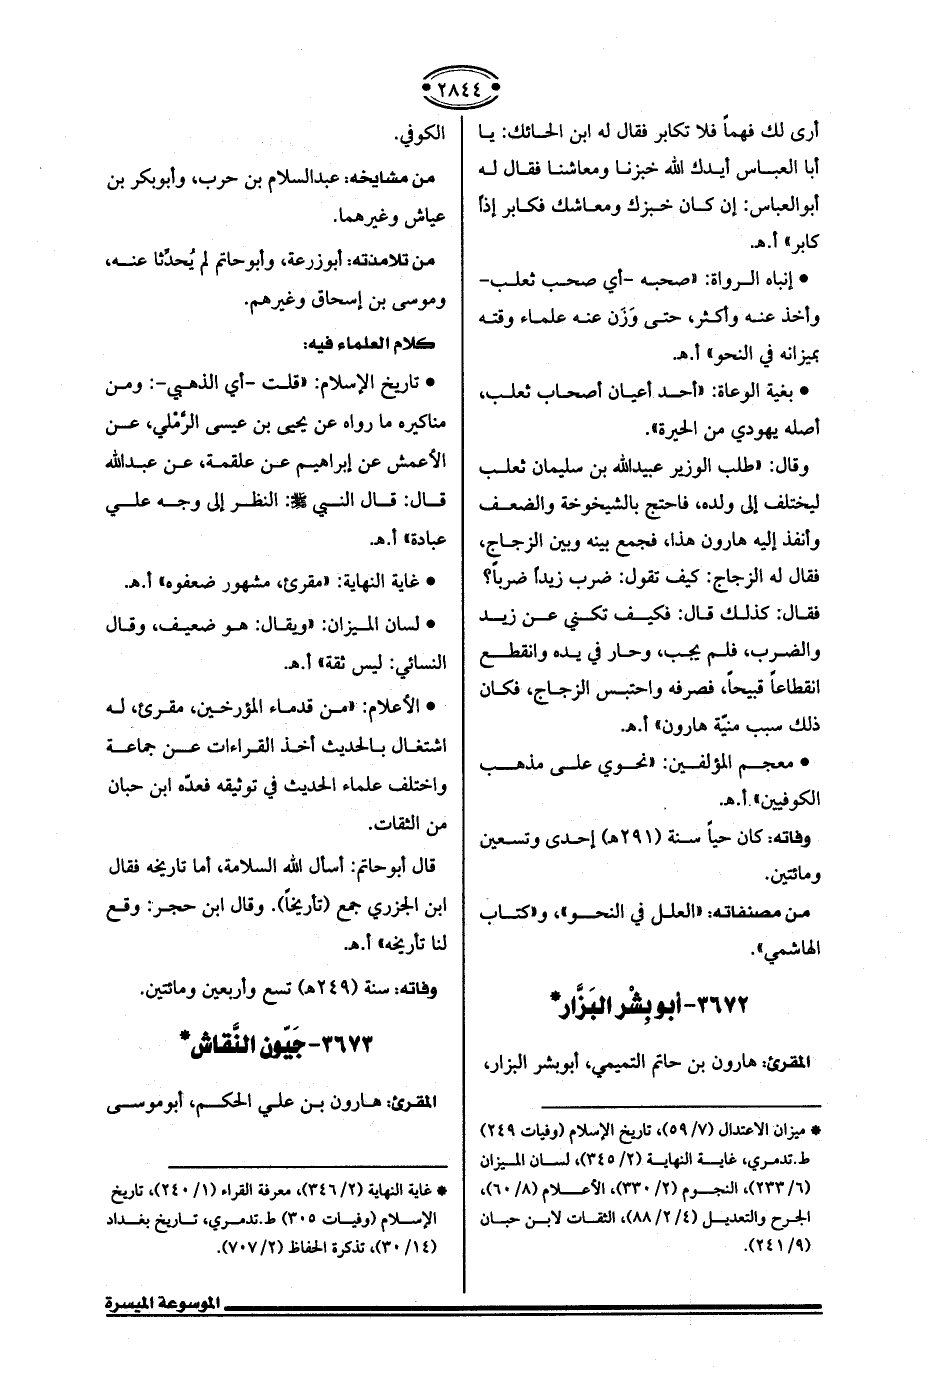 ٢٨٤٤
أرى لك فهماً فلا تكابر فقال له ابن الحائك: يا
أبا العباس أيدك الله خبزنا ومعاشنا فقال له
أبوالعباس: إن كان خبزك ومعاشك فكابر إذاً
كابر» أ.هـ.
• إنباه الرواة: «صحبه -أي صحب ثعلب-
وأخذ عنه وأكثر، حتى وَزَن عنه علماء وقته
بميزانه في النحو» أ.هـ.
• بغية الوعاة: «أحد أعيان أصحاب ثعلب،
أصله يهودي من الحيرة».
وقال: «طلب الوزير عبيدالله بن سليمان ثعلب
ليختلف إلى ولده، فاحتج بالشيخوخة والضعف
وأنفذ إليه هارون هذا، فجمع بينه وبين الزجاج،
فقال له الزجاج: كيف تقول: ضرب زيداً ضرباً؟
فقال: كذلك قال: فكيف تكني عن زيد
والضرب، فلم يجب، وحار في يده وانقطع
انقطاعاً قبيحاً، فصرفه واحتبس الزجاج، فكان
ذلك سبب منيّة هارون» أ.هـ.
• معجم المؤلفين: «نحوي على مذهب
الكوفيين» أ.هـ.
وفاته: كان حياً سنة (٢٩١هـ) إحدى وتسعين
ومائتين.
من مصنفاته: «العلل في النحو»، و«كتاب
الهاشمي».
٣٦٧٢-أبو بِشْر البَزَّار*
المقرئ: هارون بن حاتم التميمي، أبوبشر البزار،
* ميزان الاعتدال (٧/ ٥٩)، تاريخ الإسلام (وفيات ٢٤٩)
ط.تدمري، غاية النهاية (٢/ ٣٤٥)، لسان الميزان
(٦/ ٢٣٣)، النجوم (٢/ ٣٣٠)، الأعلام (٨/ ٦٠)،
الجرح والتعديل (٤/ ٢/ ٨٨)، الثقات لابن حبان
(٩/ ٢٤١).
الكوفي.
من مشايخه: عبدالسلام بن حرب، وأبوبكر بن
عياش وغيرهما.
من تلامذته: أبوزرعة، وأبوحاتم لم يُحدِّثا عنه،
وموسى بن إسحاق وغيرهم.
كلام العلماء فيه:
• تاريخ الإسلام: «قلت -أي الذهبي-: ومن
مناكيره ما رواه عن يحيى بن عيسى الرَّمْلي، عن
الأعمش عن إبراهيم عن علقمة، عن عبدالله
قال: قال النبي ﷺ: النظر إلى وجه علي
عبادة» أ.هـ.
• غاية النهاية: «مقرئ، مشهور ضعفوه» أ.هـ.
• لسان الميزان: «ويقال: هو ضعيف، وقال
النسائي: ليس ثقة» أ.هـ.
• الأعلام: «من قدماء المؤرخين، مقرئ، له
اشتغال بالحديث أخذ القراءات عن جماعة
واختلف علماء الحديث في توثيقه فعدّه ابن حبان
من الثقات.
قال أبوحاتم: أسأل الله السلامة، أما تاريخه فقال
ابن الجزري جمع (تأريخاً). وقال ابن حجر: وقع
لنا تأريخه» أ.هـ.
وفاته: سنة (٢٤٩هـ) تسع وأربعين ومائتين.
٣٦٧٣-جَيّون النَّقاش*
المقرئ: هارون بن علي الحكم، أبوموسى
* غاية النهاية (٢/ ٣٤٦)، معرفة القراء (١/ ٢٤٠)، تاريخ
الإسلام (وفيات ٣٠٥) ط.تدمري، تاريخ بغداد
(١٤/ ٣٠)، تذكرة الحفاظ (٢/ ٧٠٧).
الموسوعة الميسرة